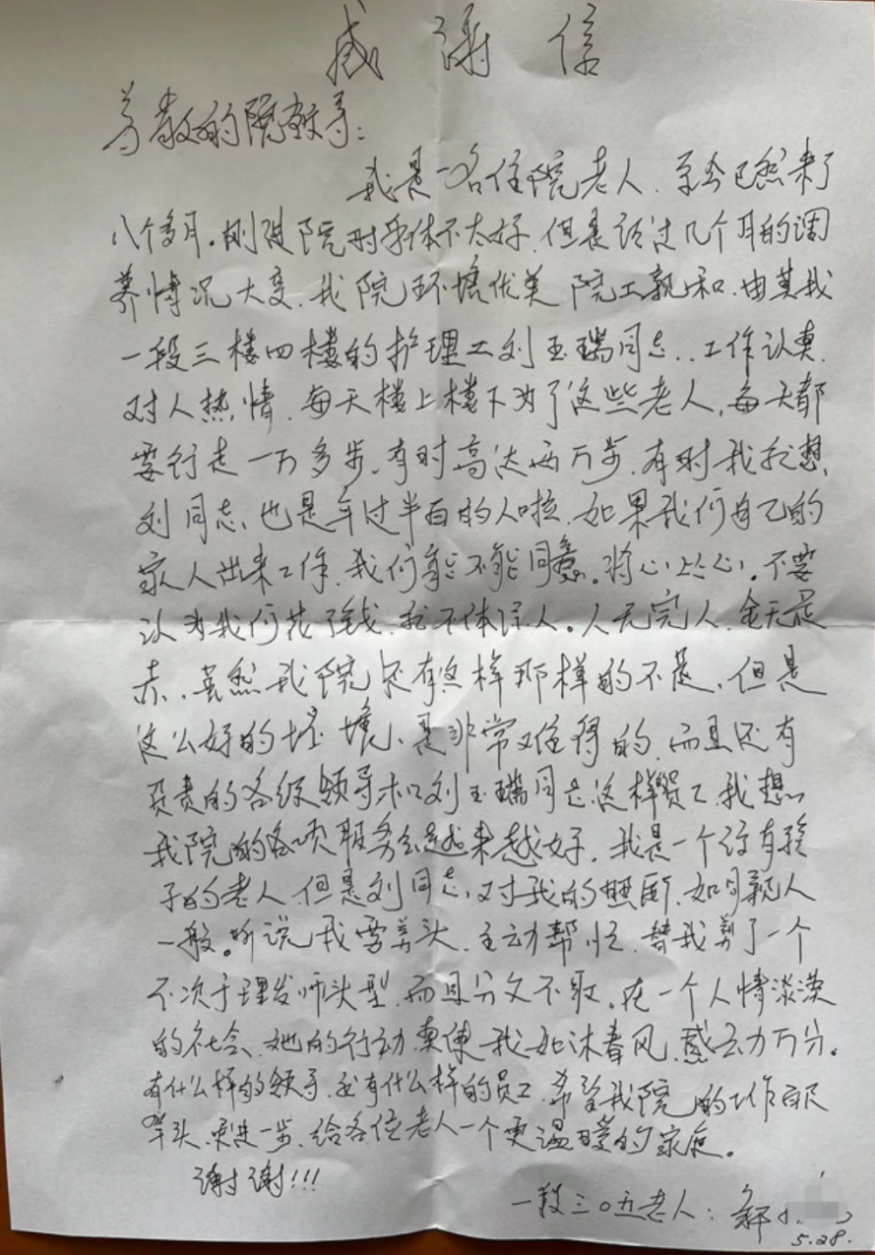 感谢信
尊敬的院领导:
我是一名住院老人.至今已然来了
八个多月。刚进院时身体不太好.但是经过几个月的调
养情况大变.我院环境优美 院工亲和.由其我
一段三楼四楼的护理工刘玉瑞同志..工作认真.
对人热情.每天楼上楼下为了这些老人,每天都
要行走一万多步.有时高达两万步.有时我就想.
刘同志.也是年过半百的人啦.如果我们自己的
家人出来工作.我们能不能同意。将心比心.不要
认为我们花了钱.就不体谅人。人无完人.金无足
赤.虽然我院还有这样那样的不足.但是
这么好的环境、是非常难得的.而且还有
负责的各级领导和刘玉瑞同志这样员工.我想
我院的各项服务会越来越好.我是一个没有孩
子的老人.但是刘同志.对我的照顾.如同亲人
一般。听说我要剪头.主动帮忙.替我剪了一个
不次于理发师头型.而且分文不取。在一个人情淡漠
的社会、她的行动.真使我如沐春风.感动万分。
有什么样的领导.就有什么样的员工.希望我院的工作百尺
竿头.更进一步.给各位老人一个更温暖的家庭。
谢谢!!!
一段三〇五老人:
5.28.